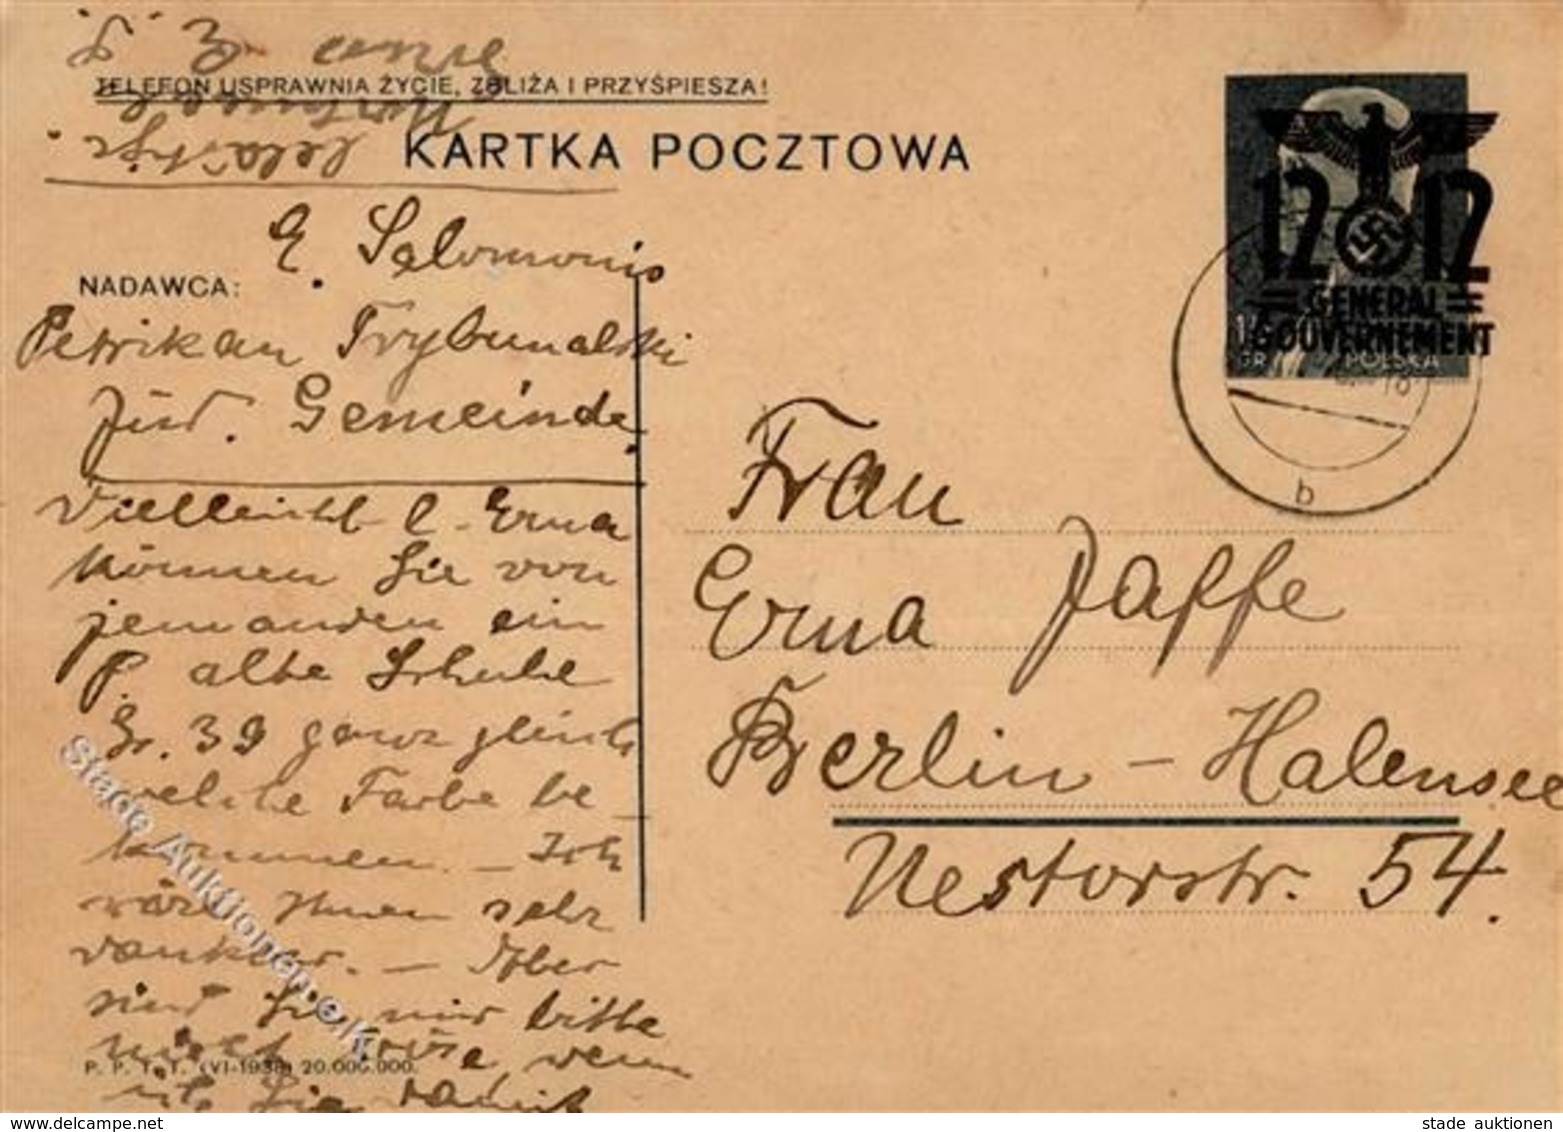 TELEFON USPRAWNIA ŻYCIE, ZBLIŻA I PRZYŚPIESZA!
KARTKA POCZTOWA
12 12
GENERAL
GOUVERNEMENT
GR POLSKA
b
NADAWCA:
E. Salomonis
Petrikau Trybunalski
Jüd. Gemeinde
Vielleicht l. Erna
können Sie von
jemanden ein
P. alte Schuhe
Gr. 39 ganz gleich
welche Farbe be-
kommen. – Ich
wäre Ihnen sehr
dankbar. – Aber
sind Sie mir bitte
nicht böse, wenn
ich Sie damit
Frau
Erna Jaffe
Berlin - Halensee
Nestorstr. 54.
P. P. T. T. (VI-1938) 20.000.000.
Stade Auktionen
www.delcampe.net
stade auktionen